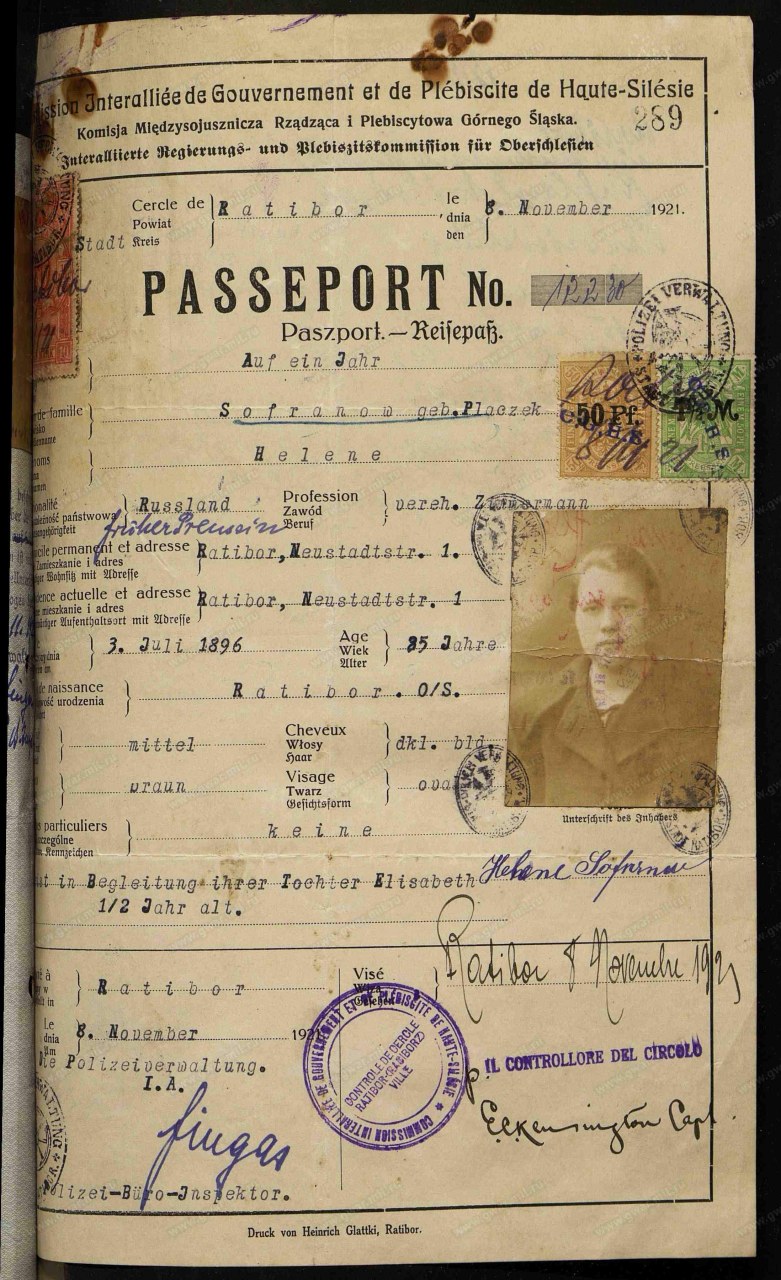 ission Interalliée de Gouvernement et de Plébiscite de Haute-Silésie
Komisja Międzysojusznicza Rządząca i Plebiscytowa Górnego Śląska.
289
Interalliierte Regierungs- und Plebiszitskommission für Oberschlesien
Cercle de
Powiat
Stadt Kreis
Ratibor
le
dnia
den
8. November 1921.
PASSEPORT No. 12230
Paszport. — Reisepaß.
Auf ein Jahr
POLIZEI VERWALTUNG
50 Pf.
M
C.I.H.S.
de famille
Sofranow geb. Placzek
oms
Helene
onalité
państwowa
Russland
früher Preussin
Profession
Zawód
Beruf
vereh. Zimmermann
cile permanent et adresse
Zamieszkanie i adres
Wohnsitz mit Adresse
Ratibor, Neustadtstr. 1.
ence actuelle et adresse
mieszkanie i adres
Aufenthaltsort mit Adresse
Ratibor, Neustadtstr. 1
3. Juli 1896
Age
Wiek
Alter
25 Jahre
de naissance
urodzenia
Ratibor. O/S.
mittel
Cheveux
Włosy
Haar
dkl. bld
braun
Visage
Twarz
Gesichtsform
ova
s particuliers
czególne
Kennzeichen
keine
Unterschrift des Inhabers
st in Begleitung ihrer Tochter Elisabeth
Helene Sofranow
1/2 Jahr alt.
é à
Ratibor
Visé
Ratibor 8 Novembre 1921
Le
dnia
8. November 1921
Die Polizeiverwaltung.
I.A.
COMMISSION INTERALLIEE DE GOUVERNEMENT ET DE PLÉBISCITE DE HAUTE-SILÉSIE
CONTROLE DE CERCLE
RATIBOR-(RACIBORZ)
VILLE
IL CONTROLLORE DEL CIRCOLO
p.
E.C. Kensington Capt.
Polizei-Büro-Inspektor.
Druck von Heinrich Glattki, Ratibor.